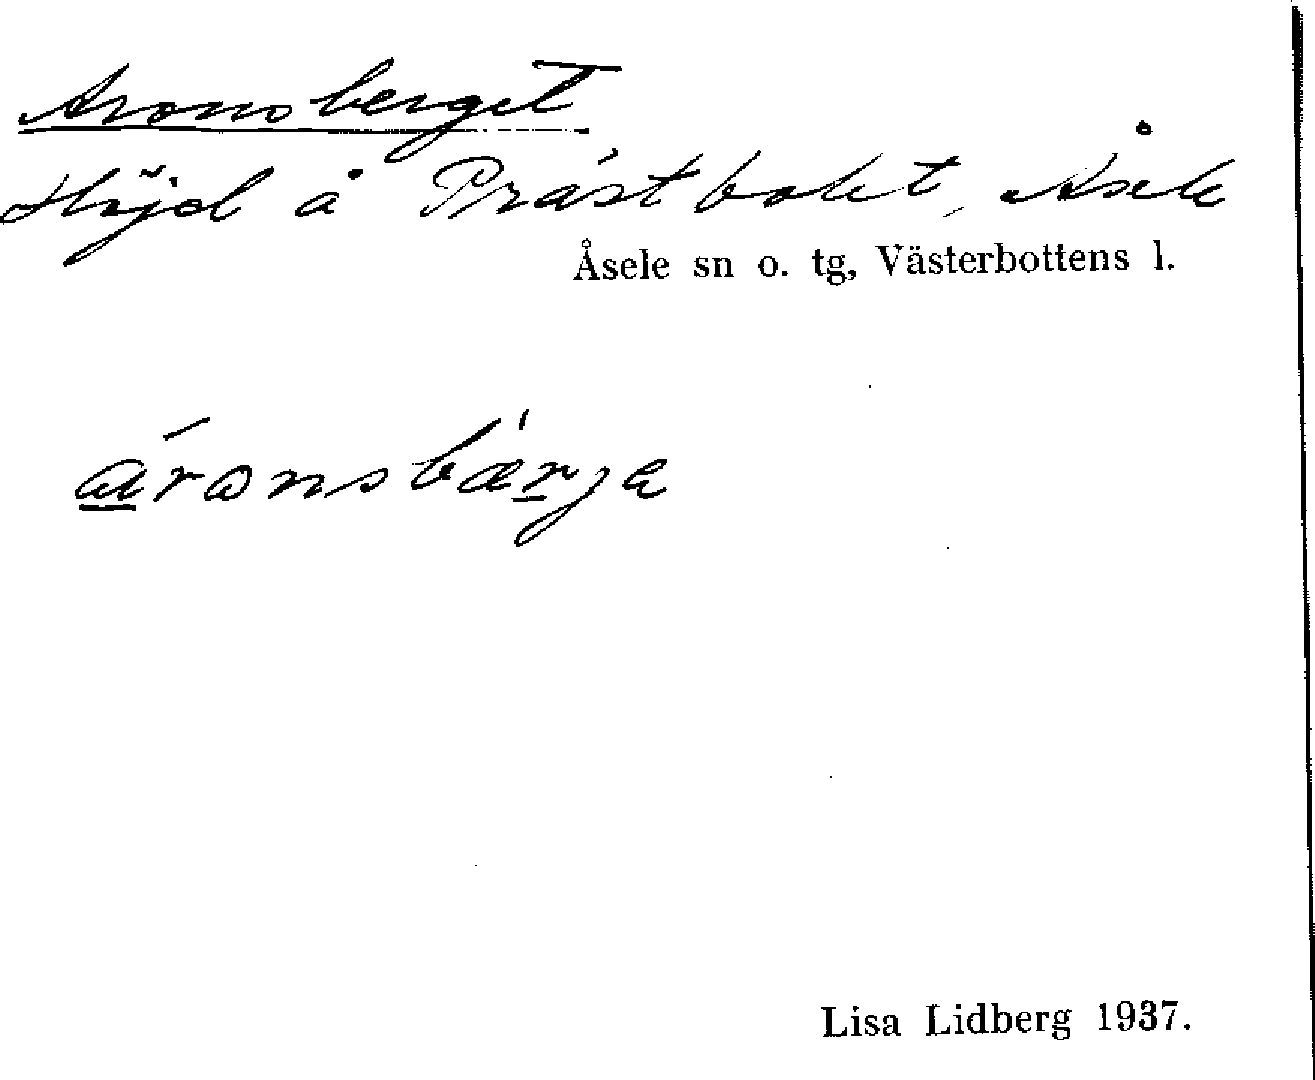 Aronsberget
Höjd å Prästbolet, Åsele
Åsele sn o. tg, Västerbottens l.
áronsbærja
Lisa Lidberg 1937.